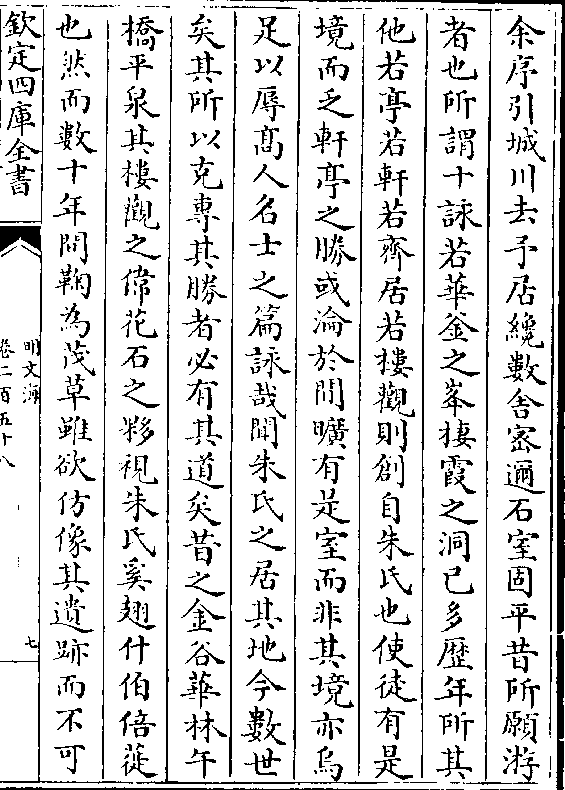 余序引城川去予居纔數舍密邇石室固平昔所願游
者也所謂十詠若華釜之峯棲霞之洞已多歷年所其
他若亭若軒若齊居若樓觀則創自朱氏也使徒有是
境而乏軒亭之勝或淪於閒曠有是室而非其境亦烏
足以辱髙人名士之篇詠哉聞朱氏之居其地今數世
矣其所以克專其勝者必有其道矣昔之金谷華林午
橋平泉其樓觀之偉花石之夥視朱氏奚翅什伯倍蓰
也然而數十年間鞠為茂草雖欲仿像其遺跡而不可
欽定四庫全書
明文海
卷二百五十八
七